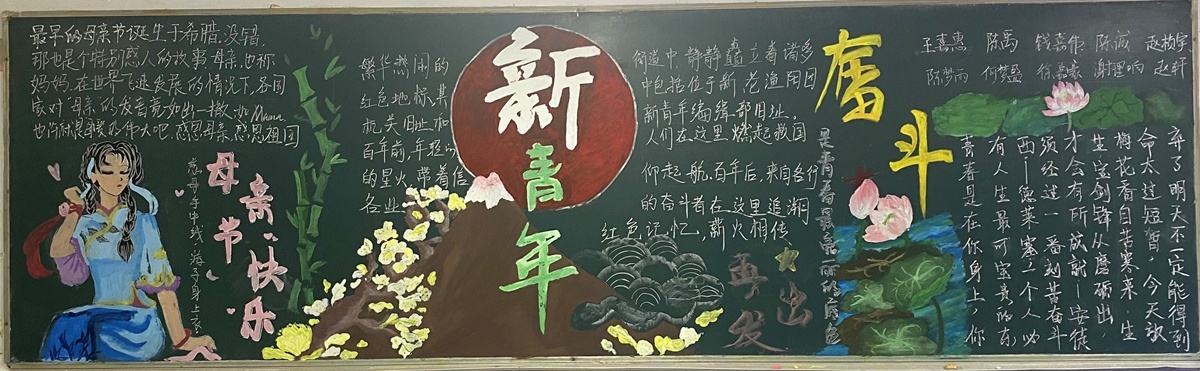 最早的母亲节诞生于希腊,没错,
那也是个特别感人的故事,母亲,也称
妈妈,在世界飞速发展的情况下,各国
家对"母亲"的发音竟如出一撤,如Mama
感恩母亲,感恩祖国
母亲节快乐
慈母手中线,游子身上衣
繁华热闹的
红色地标,其
机关旧址和
百年前,年轻
的星火,带着信
各业
新青年
静静矗立着诸多
中包括位于新老渔阳
新青年编辑部旧址,
人们在这里燃起救国
仰起航,百年后,来自各行
的奋斗者在这里追溯
红色记忆,薪火相传
再出发
奋斗
是青春最亮丽的底色
王喜惠 陈禹 钱嘉伟 陈诚 赵桢宇
陈梦雨 何梦盈 徐嘉豪 谢理响 赵轩
弃了明天不一定能得到
命太过短暂,今天放
梅花香自苦寒来。生
生宝剑锋从磨砺出,
才会有所成就——安徒
须经过一番刻苦奋斗
西——德莱塞。一个人必
有人生最可宝贵的东
青春是在你身上,你